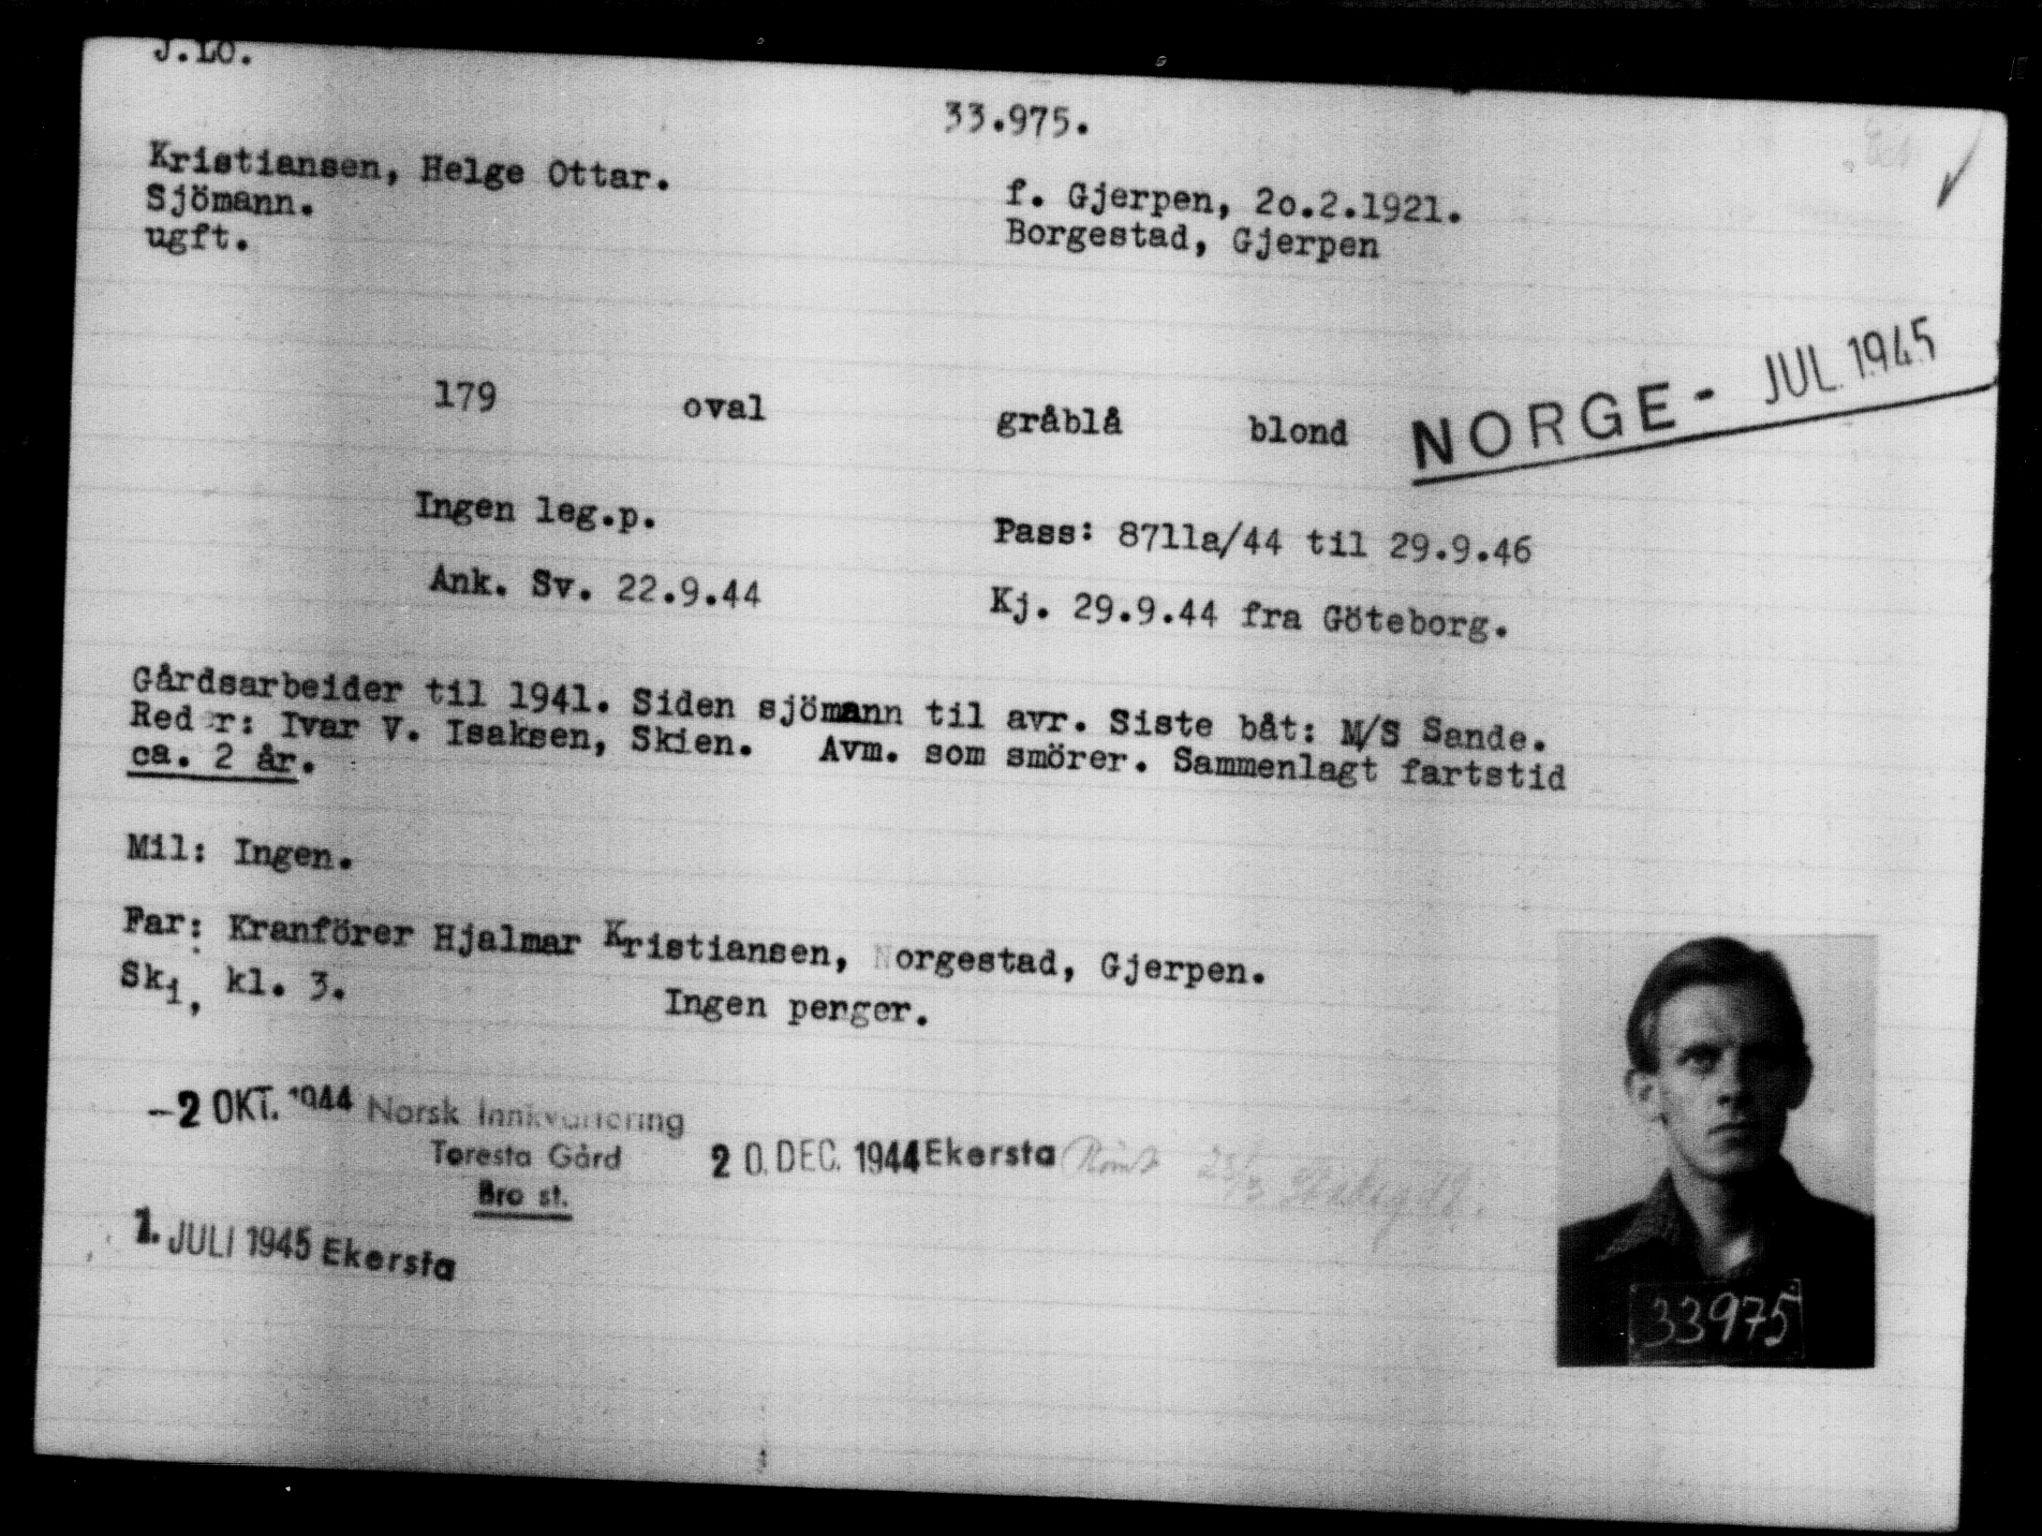 J.LO.
33.975.
Kristiansen, Helge Ottar.
Sjömann.
ugft.
f. Gjerpen, 2o.2.1921.
Borgestad, Gjerpen
179 oval gråblå blond
NORGE - JUL. 1945
Ingen leg.p.
Pass: 8711a/44 til 29.9.46
Ank. Sv. 22.9.44
Kj. 29.9.44 fra Göteborg.
Gårdsarbeider til 1941. Siden sjömann til avr. Siste båt: M/S Sande.
Reder: Ivar V. Isaksen, Skien. Avm. som smörer. Sammenlagt fartstid
ca. 2 år.
Mil: Ingen.
Far: Kranförer Hjalmar Kristiansen, Norgestad, Gjerpen.
Ski, kl. 3. Ingen penger.
-2 OKT. 1944 Norsk Innkvartering
Toresta Gård
Bro st.
20. DEC. 1944 Ekersta
1. JULI 1945 Ekersta
33975